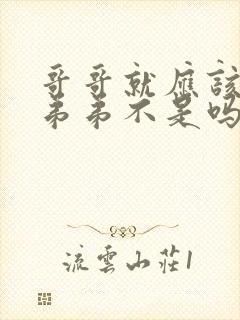 哥哥就應該
弟弟不是嗎
流雲山莊1